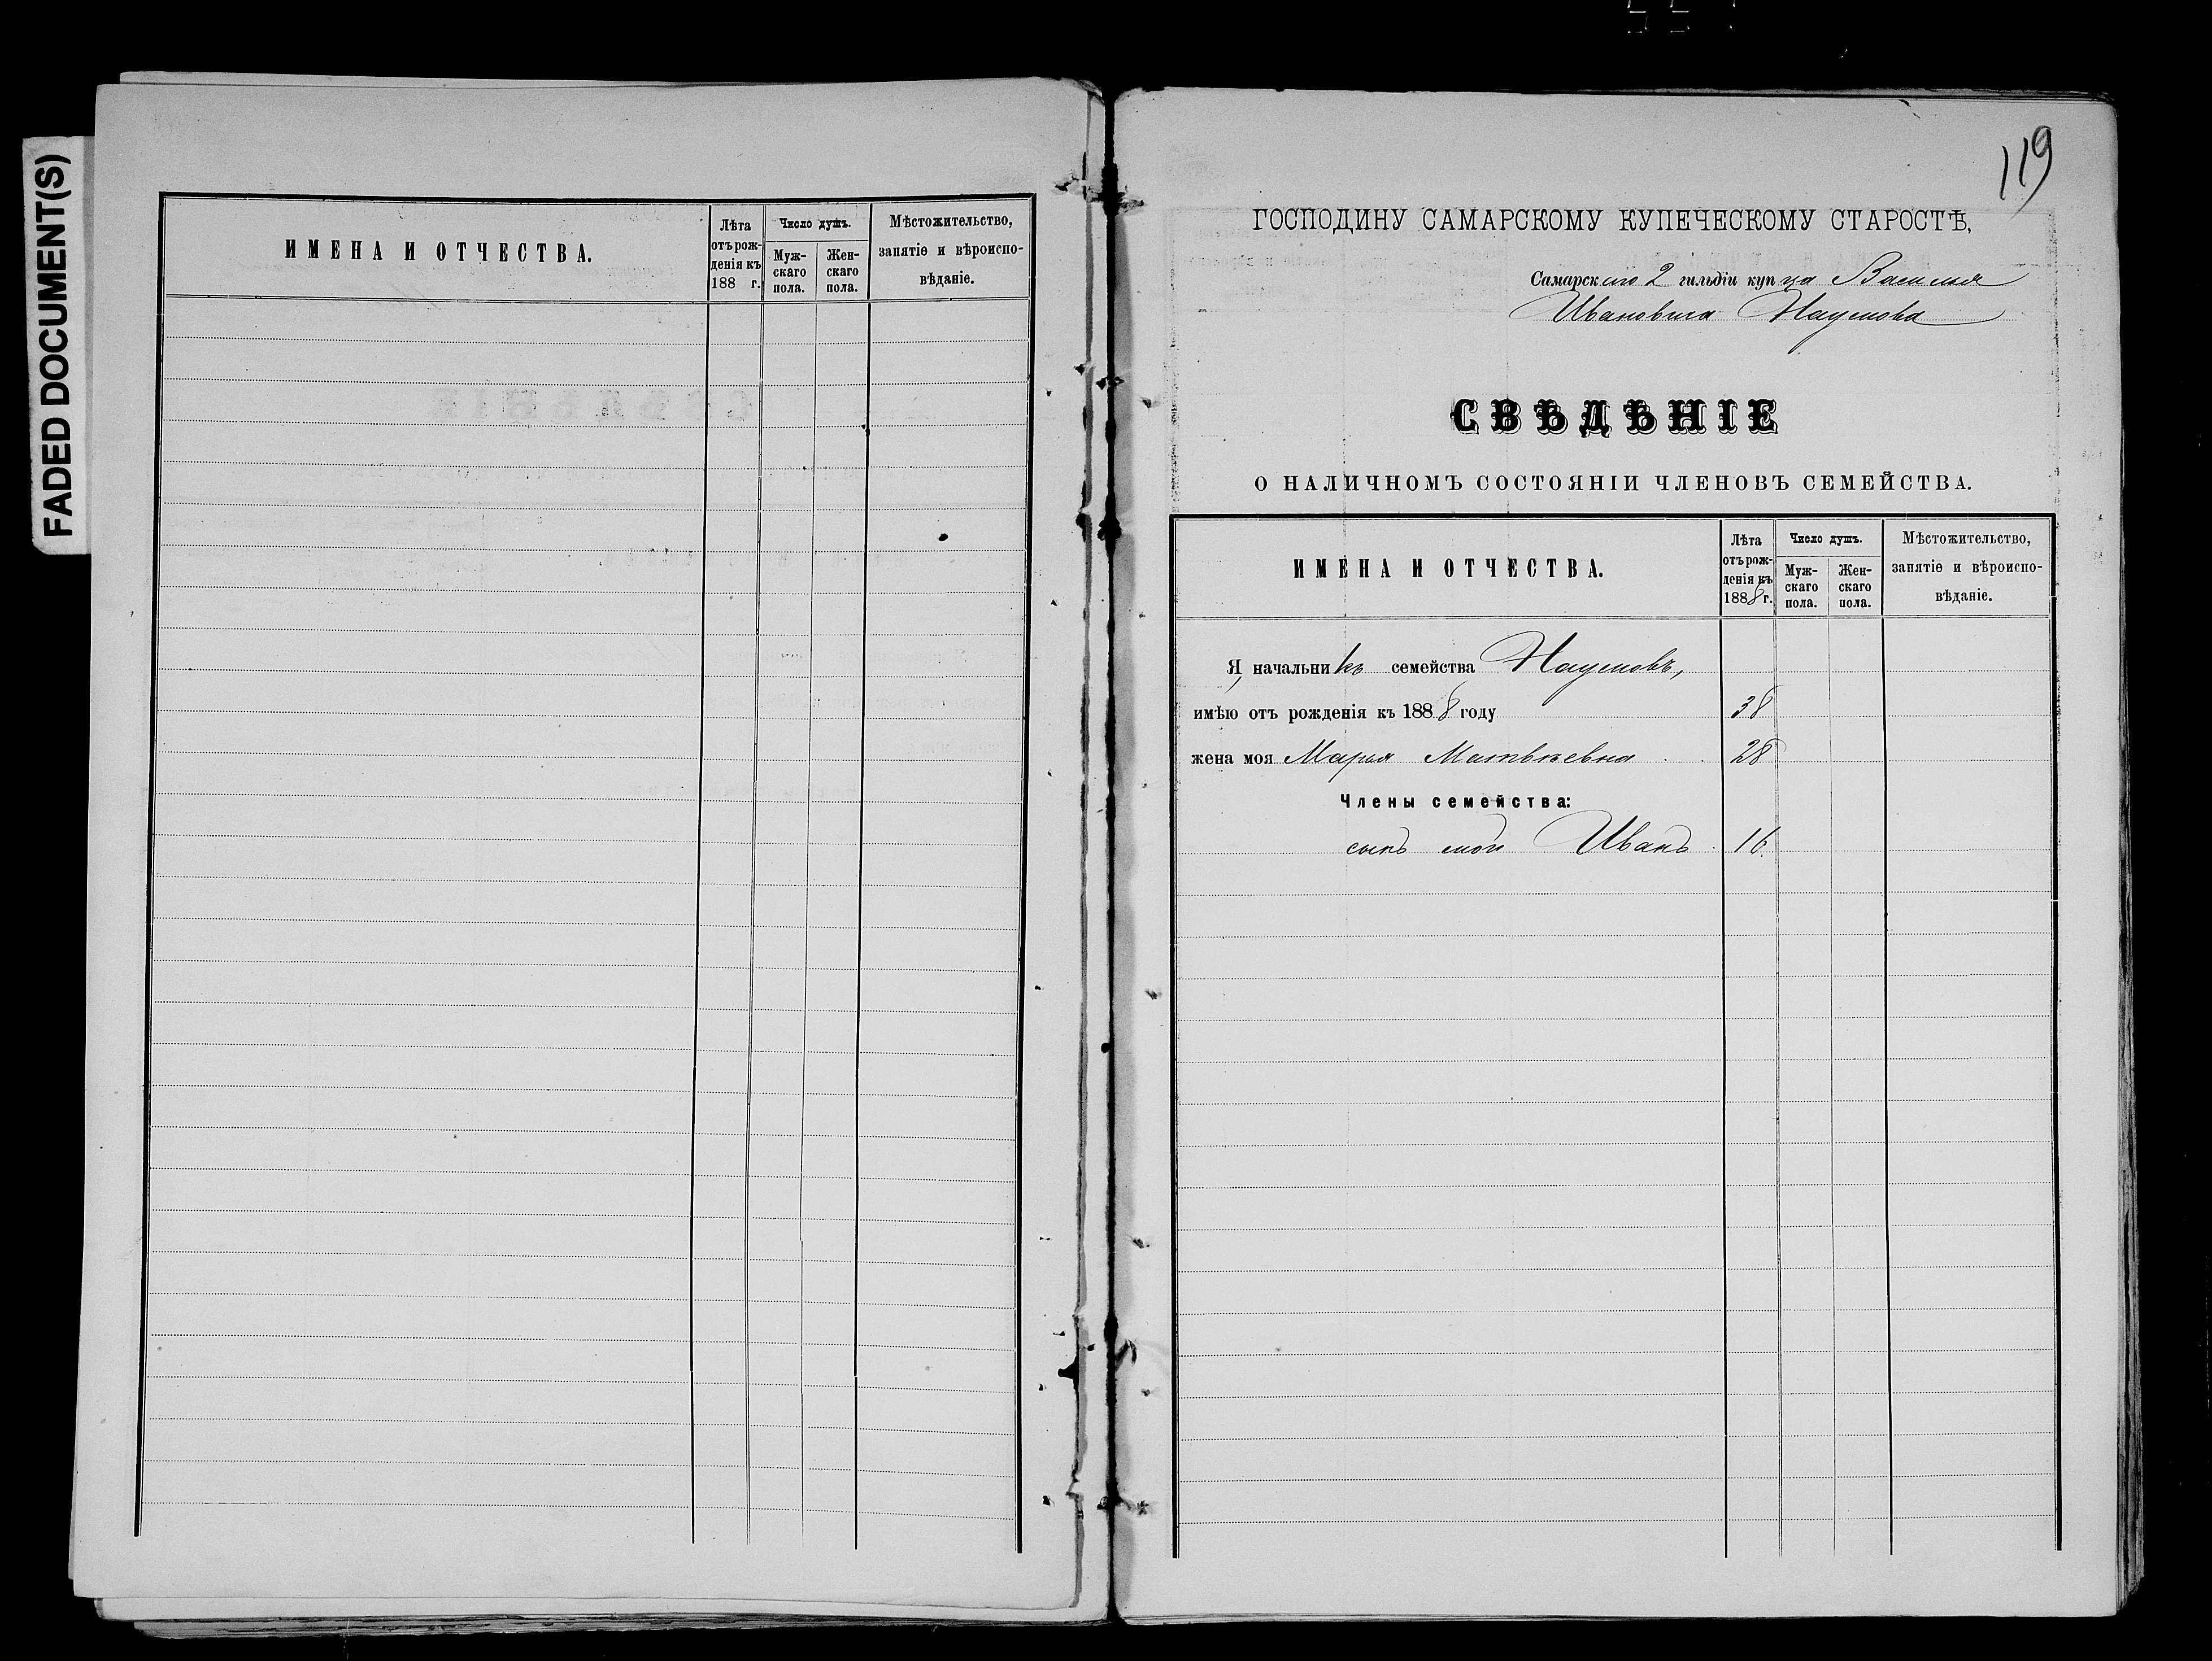 FADED DOCUMENT(S)
ИМЕНА И ОТЧЕСТВА.
Лѣта
отъ рож-
денія къ
188 г.
Число душъ.
Муж-
скаго
пола.
Жен-
скаго
пола.
Мѣстожительство,
занятіе и вѣроиспо-
вѣданіе.
119
ГОСПОДИНУ САМАРСКОМУ КУПЕЧЕСКОМУ СТАРОСТѢ,
Самарскаго 2 гильдіи купца Василья
Ивановича Наумова
СВѢДѢНІЕ
О НАЛИЧНОМЪ СОСТОЯНІИ ЧЛЕНОВЪ СЕМЕЙСТВА.
ИМЕНА И ОТЧЕСТВА.
Лѣта
отъ рож-
денія къ
1888 г.
Число душъ.
Муж-
скаго
пола.
Жен-
скаго
пола.
Мѣстожительство,
занятіе и вѣроиспо-
вѣданіе.
Я, начальникъ семейства Наумовъ,
имѣю отъ рожденія къ 1888 году 38
жена моя Марья Матвѣевна 28
Члены семейства:
сынъ мой Иванъ 16.